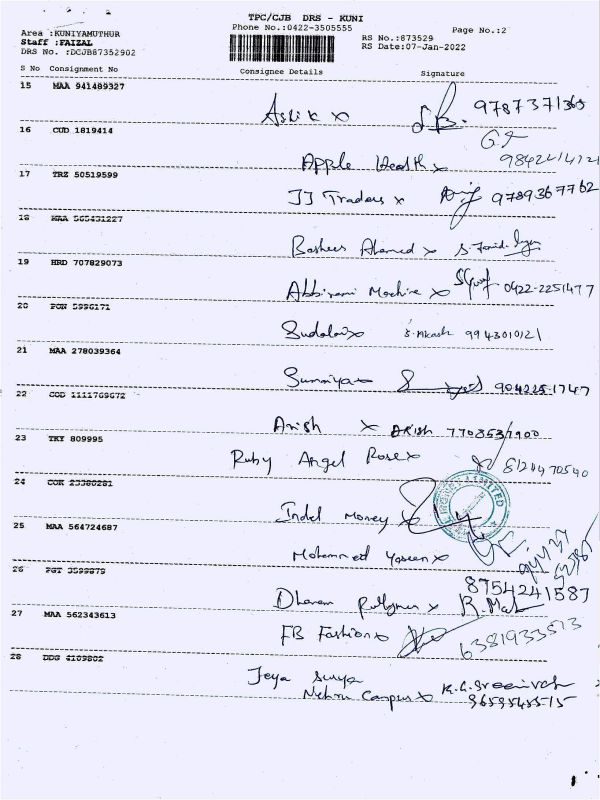 TPC/CJB DRS - KUNI
Phone No.:0422-3505555
Page No.:2
Area :KUNIYAMUTHUR
Staff :FAIZAL
DRS No. :DCJB87352902
RS No.:873529
RS Date:07-Jan-2022
S No Consignment No Consignee Details Signature
15 MAA 941489327
Ashik x 9787371365
16 CUD 1819414
Apple Health x
17 TRZ 50519599
JJ Traders x 9789367762
18 MAA 565431227
Basheer Ahamed x
19 HRD 707829073
Abbirami Machine x 0422-2251477
20 PON 5996171
Sudalai x S. Akash 9943010121
21 MAA 278039364
Sumaiya x
22 COD 1111769672
Arish x ARISH
23 TKY 809995
Ruby Angel Rose x 8124470540
24 COK 23380281
Indel Money x
LIMITED
25 MAA 564724687
Mohammed Yaseen x
26 PGT 3599879
8754241587
Dharan x
27 MAA 562343613
FB Fashion x 6381933513
28 DDG 4109802
Jeya Surya
Nehru Campus x